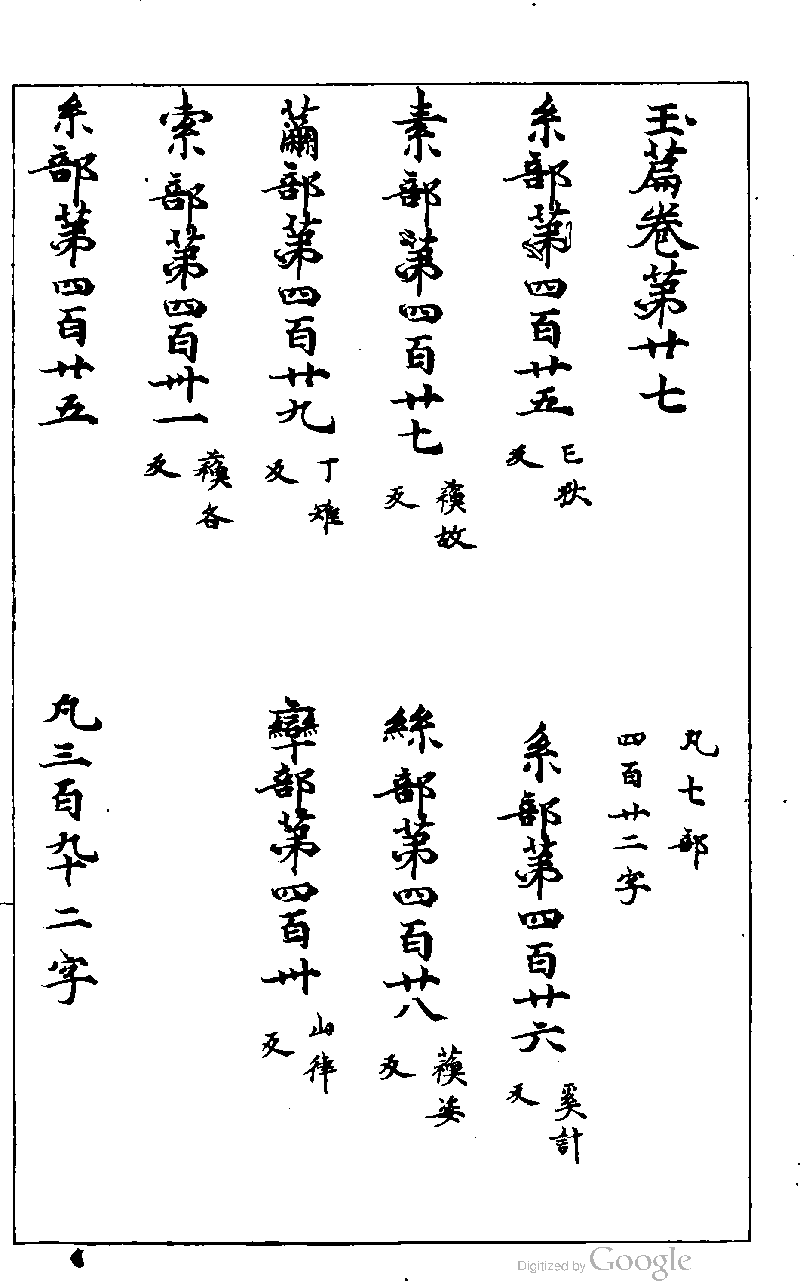 玉篇卷第廿七
凡七部
四百廿二字
糸部第四百廿五 亡狄反
系部第四百廿六 奚計反
素部第四百廿七 蘓故反
絲部第四百廿八 蘓姿反
黹部第四百廿九 丁雉反
率部第四百卅 山律反
索部第四百卅一 蘓各反
糸部第四百廿五 凡三百九十二字
Digitized by Google